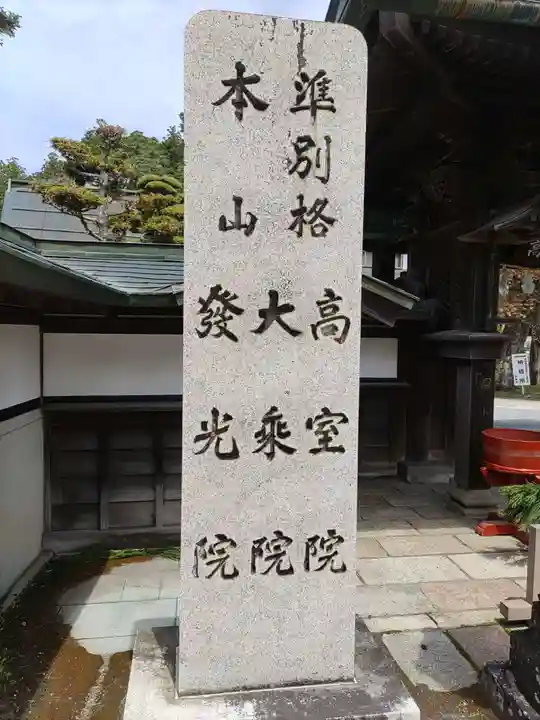 準別格本山
高室院
大乘院
發光院